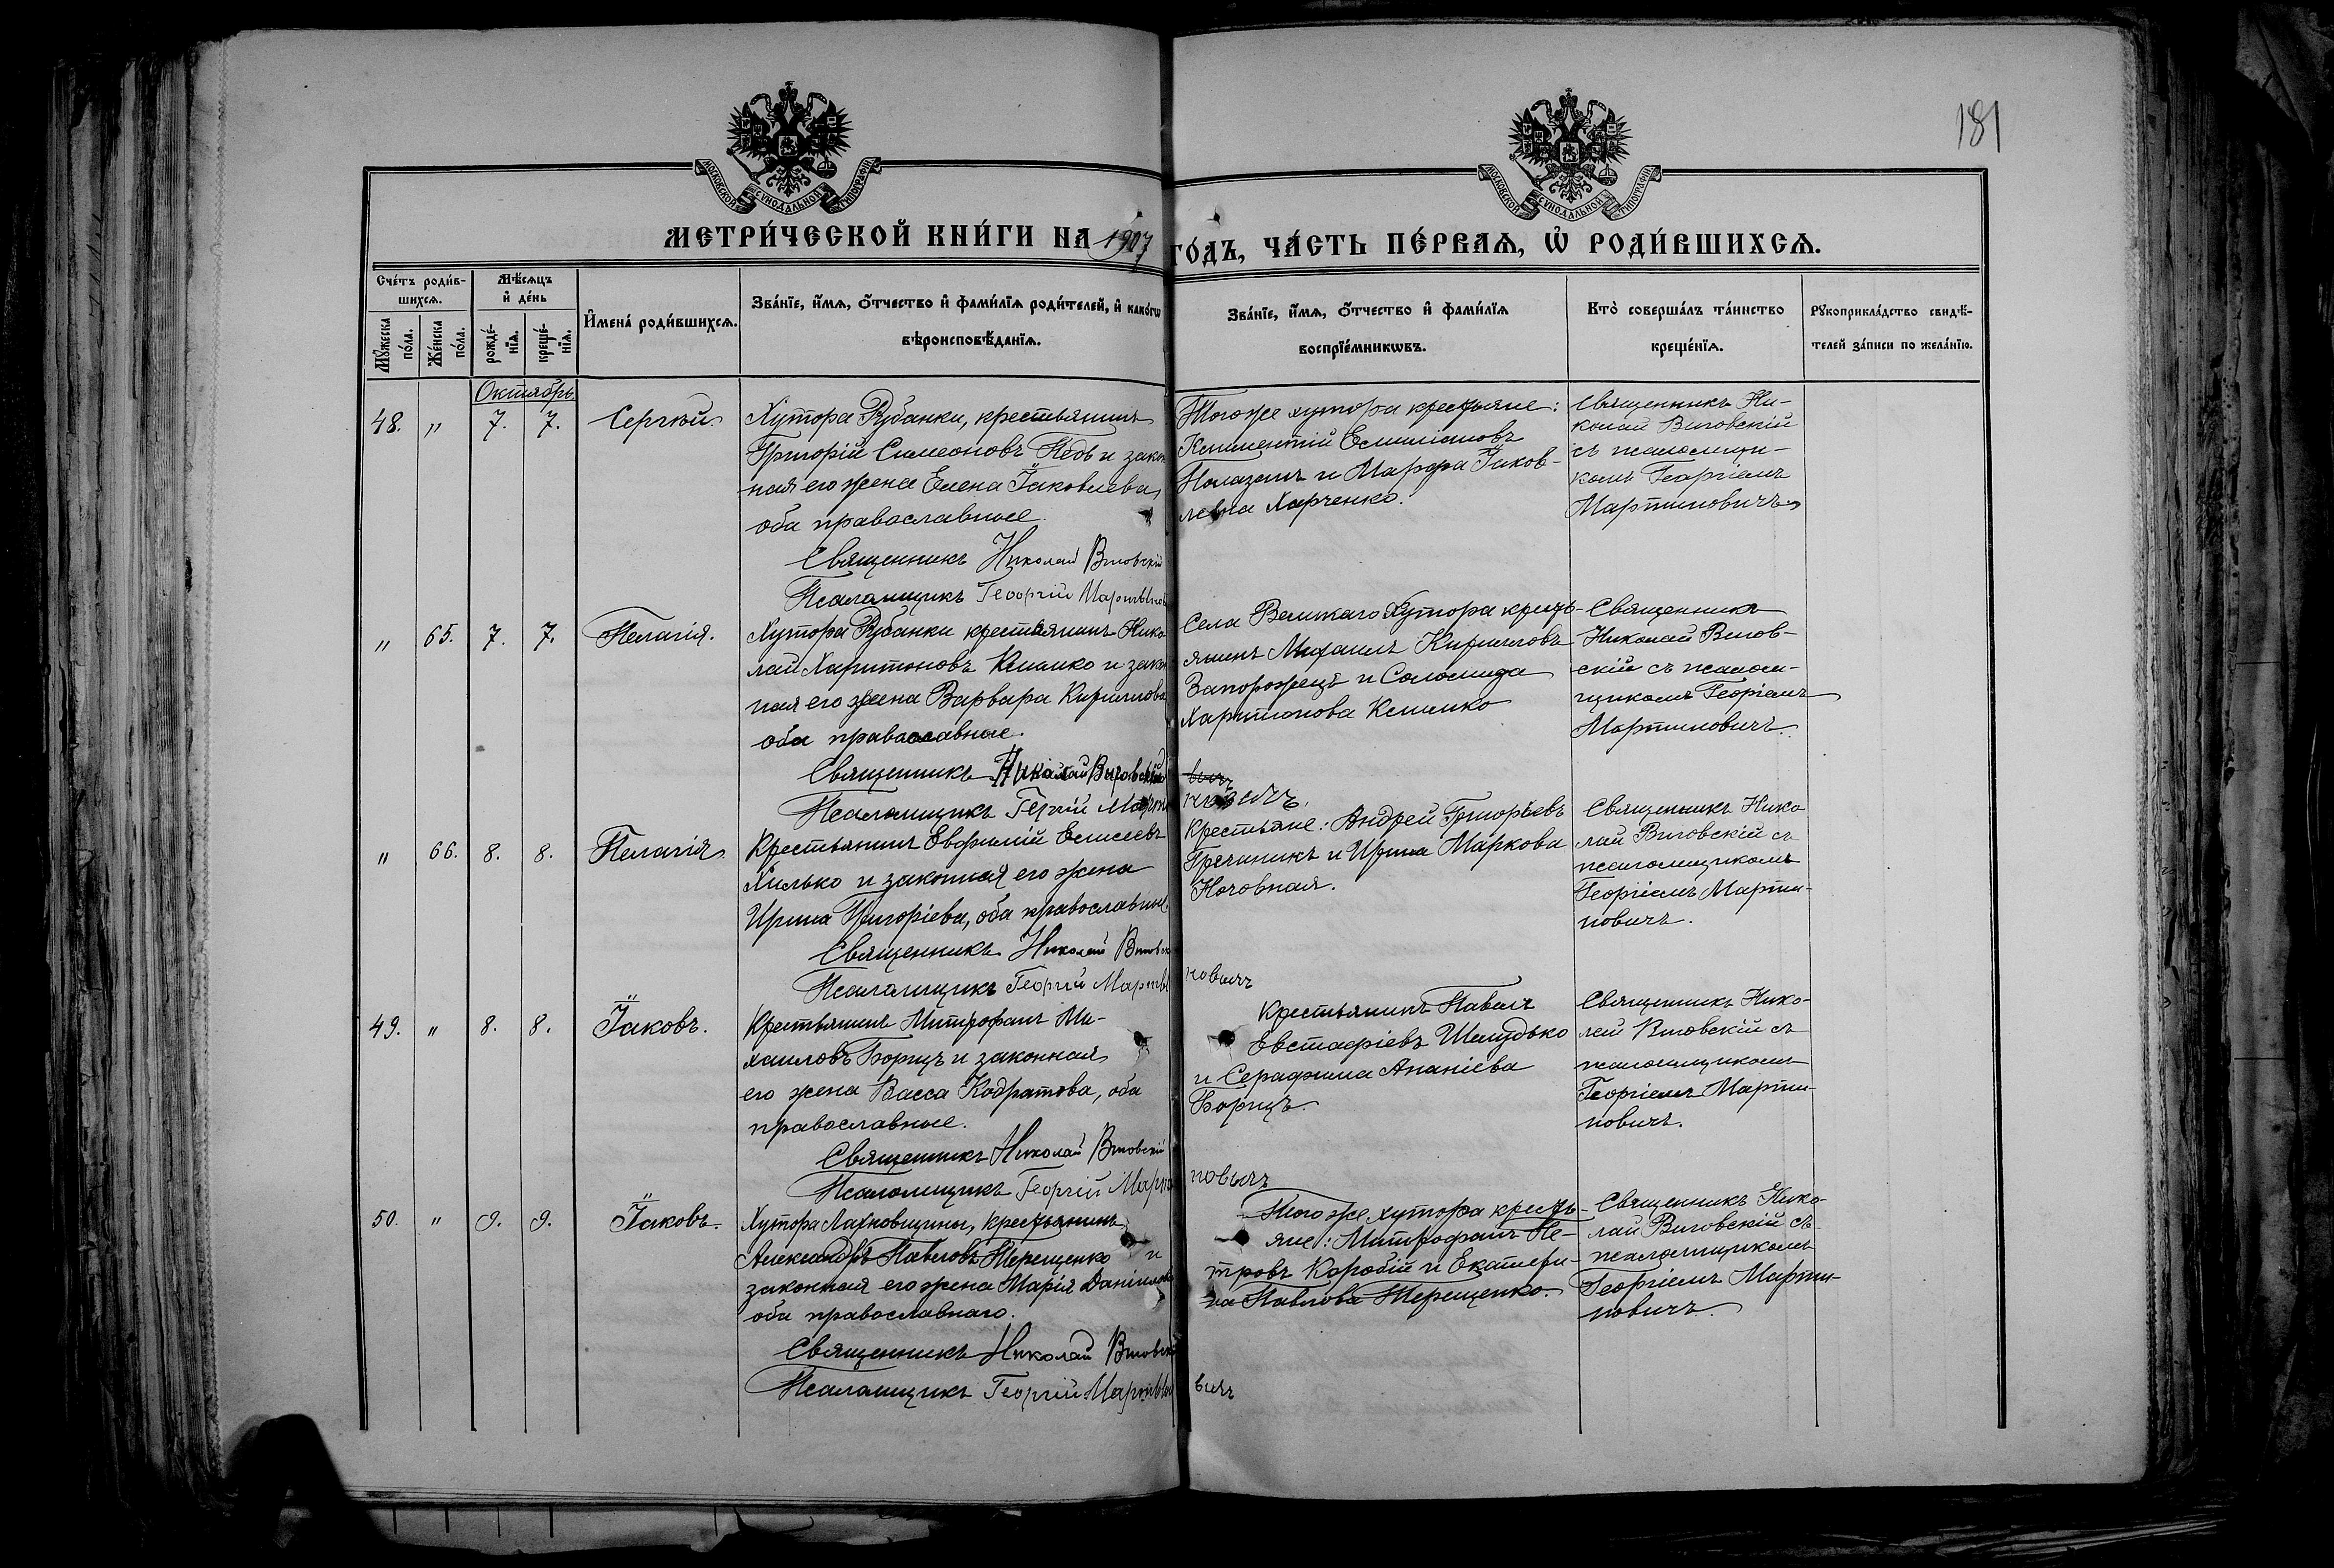 181
МОСКОВСКОЙ СѴНОДАЛЬНОЙ ТИПОГРАФІИ
МОСКОВСКОЙ СѴНОДАЛЬНОЙ ТИПОГРАФІИ
МЕТРИ́ЧЕСКОЙ КНИ́ГИ НА 1907 ГО́ДЪ, ЧА́СТЬ ПЕ́РВАѦ, Ѡ҆ РОДИ́ВШИХСѦ.
Сче́тъ роди́в-
шихсѧ.
Мꙋ́жеска по́ла.
Же́нска по́ла.
Мѣ́сѧцъ
и҆ де́нь
рожде́-
нїѧ.
креще́-
нїѧ.
И҆мена́ роди́вшихсѧ.
Зва́нїе, и҆́мѧ, ѻ҆́тчество и҆ фами́лїѧ роди́телей, и҆ како́гѡ
вѣроисповѣ́данїѧ.
Зва́нїе, и҆́мѧ, ѻ҆́тчество и҆ фами́лїѧ
воспрїе́мникѡвъ.
Кто̀ соверша́лъ та́инство
креще́нїѧ.
Рꙋкоприкла́дство свидѣ́-
телей за́писи по жела́нїю.
Октябрь
48. " 7. 7. Сергѣй.
Хутора Рубанки, крестьянинъ
Григорій Симеоновъ Недь и закон
ная его жена Елена Іаковлева,
оба православные.
Священникъ Николай Виговскій
Псаломщикъ Георгій Мартыно
Того же хутора крестьяне:
Климентій Емиліановъ
Полазанъ и Марфа Іаков-
левна Харченко.
Священникъ Ни-
колай Виговскій
съ псаломщи-
комъ Георгіемъ
Мартиновичъ
" 65. 7. 7. Пелагія.
Хутора Рубанки крестьянинъ Нико
лай Харитоновъ Климко и закон
ная его жена Варвара Кириллова
оба православные.
Священникъ Николай Виговскій
Псаломщикъ Гергій Марты
новичъ
Села Великаго Хутора кресть-
янинъ Михаилъ Кирилловъ
Запорожецъ и Соломида
Харитонова Климко
Священникъ
Николай Вигов-
скій съ псалом-
щикомъ Георгіемъ
Мартиновичъ.
" 66. 8. 8. Пелагія.
Крестьянинъ Евфимій Елисеевъ
Хилько и законная его жена
Ирина Григоріева, оба православные
Священникъ Николай Виговск
Псаломщикъ Георгій Марты
новичъ
Крестьяне: Андрей Григорьевъ
Гречаникъ и Ирина Маркова
Ночовная.
Священникъ Нико
лай Виговскій съ
псаломщикомъ
Георгіемъ Марти-
новичъ.
49. " 8. 8. Іаковъ.
Крестьянинъ Митрофанъ Ми-
хаиловъ Борищъ и законная
его жена Васса Кодратова, оба
православные.
Священникъ Николай Виговскій
Псаломщикъ Георгій Марты
новичъ
Крестьянинъ Павелъ
Евстафіевъ Шелудько
и Серафима Ананіева
Борищъ.
Священникъ Нико-
лай Виговскій съ
псаломщикомъ
Георгіемъ Марти-
новичъ.
50. " 9. 9. Іаковъ.
Хутора Лахновщины, крестьянинъ
Александръ Павловъ Терещенко и
законная его жена Марія Даніилова
оба православнаго.
Священникъ Николай Виговск
Псаломщикъ Георгій Мартыно
вичъ
Того же хутора кресть-
яне: Митрофанъ Пе-
тровъ Коробій и Екатери-
на Павлова Терещенко.
Священникъ Нико-
лай Виговскій съ
псаломщикомъ
Георгіемъ Марти-
новичъ